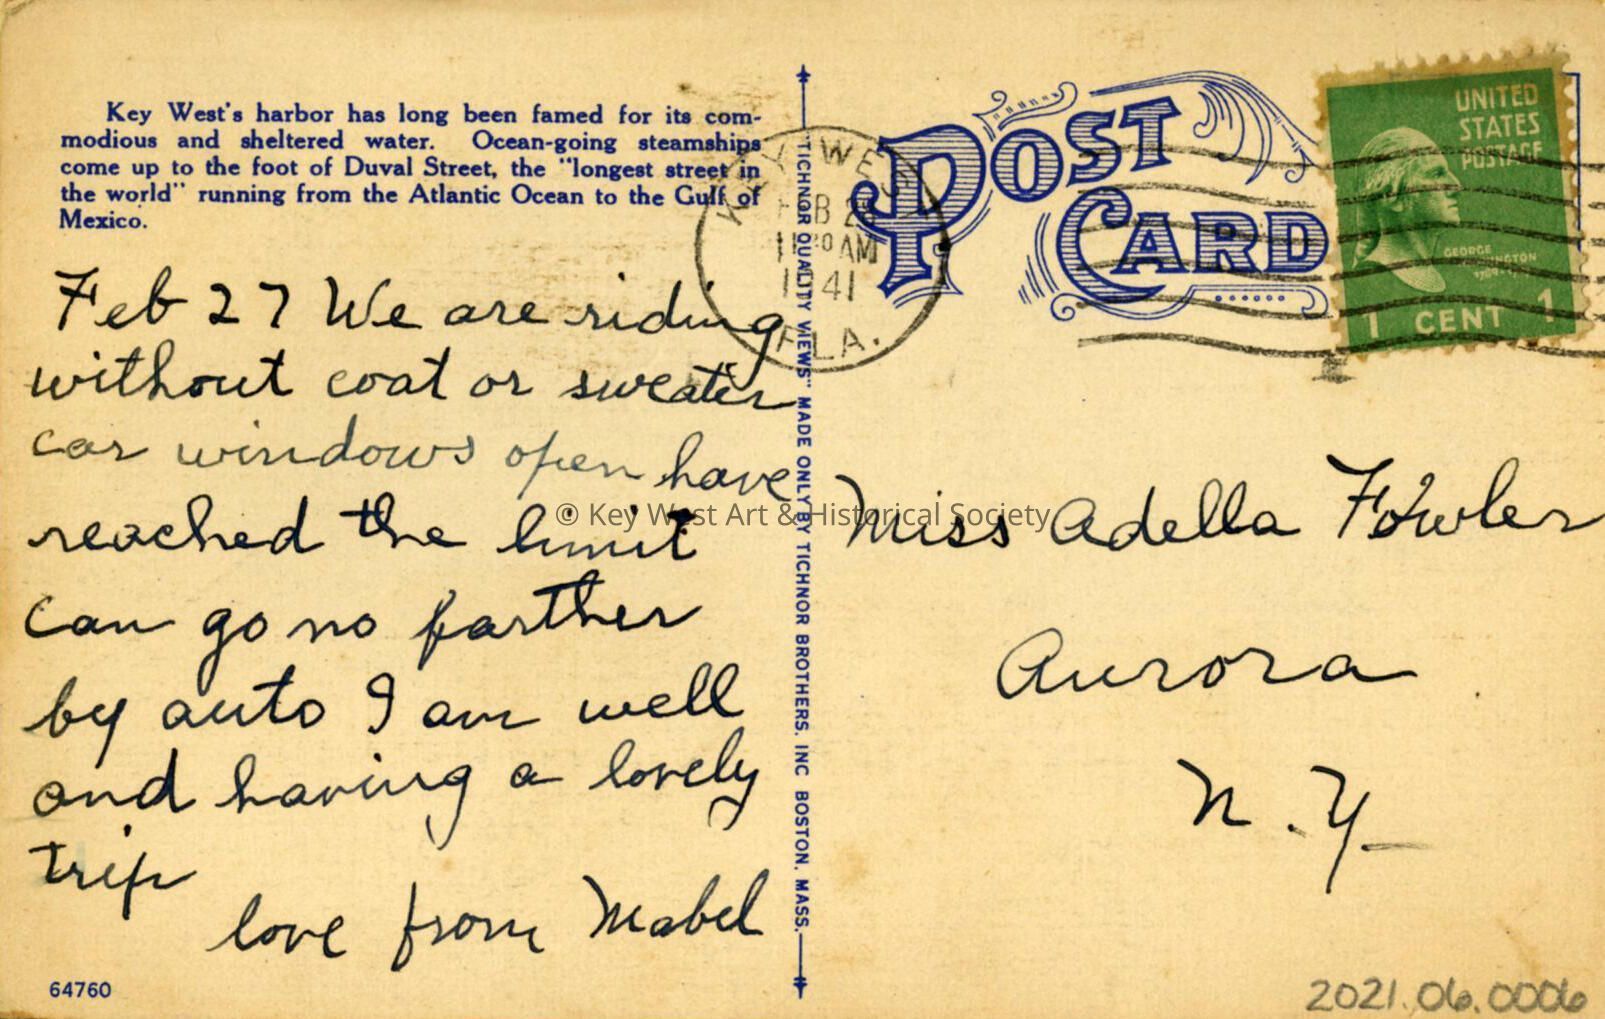 Key West's harbor has long been famed for its com-
modious and sheltered water. Ocean-going steamships
come up to the foot of Duval Street, the "longest street in
the world" running from the Atlantic Ocean to the Gulf of
Mexico.
Feb 27 We are riding
without coat or sweater
car windows open have
reached the limit
can go no farther
by auto I am well
and having a lovely
trip
love from Mabel
64760
"TICHNOR QUALITY VIEWS" MADE ONLY BY TICHNOR BROTHERS, INC BOSTON, MASS.
KEY WEST
FEB
11 30 AM
1941
FLA.
POST
CARD
UNITED
STATES
POSTAGE
GEORGE
WASHINGTON
1 CENT 1
Miss Adella Fowler
Aurora
N.Y.
© Key West Art & Historical Society
2021.06.0006